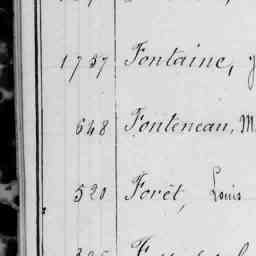 1737 Fontaine,
648 Fonteneau, M
520 Forêt, Louis